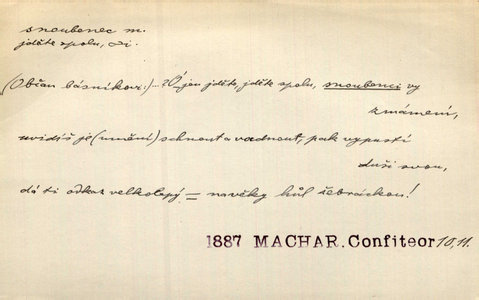 snoubenec m.
jděte spolu, Di.
(Občan básníkovi:)...? Ó, jen jděte, jděte spolu, snoubenci vy
zmámení,
uvidíš je (umění) schnout a vadnout, pak vypustí
duši svou,
dá ti odkaz velkolepý = navěky hůl žebráckou!
1887 MACHAR. Confiteor 10, 11.